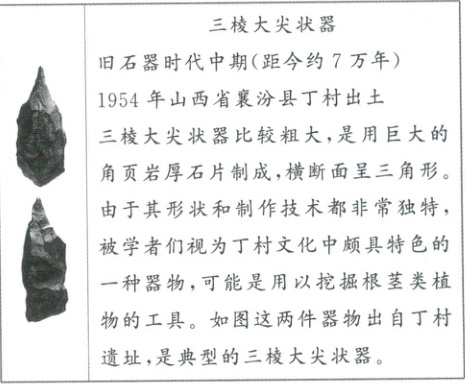 三棱大尖状器
旧石器时代中期(距今约7万年)
1954年山西省襄汾县丁村出土
三棱大尖状器比较粗大,是用巨大的
角页岩厚石片制成,横断面呈三角形。
由于其形状和制作技术都非常独特,
被学者们视为丁村文化中颇具特色的
一种器物,可能是用以挖掘根茎类植
物的工具。如图这两件器物出自丁村
遗址,是典型的三棱大尖状器。